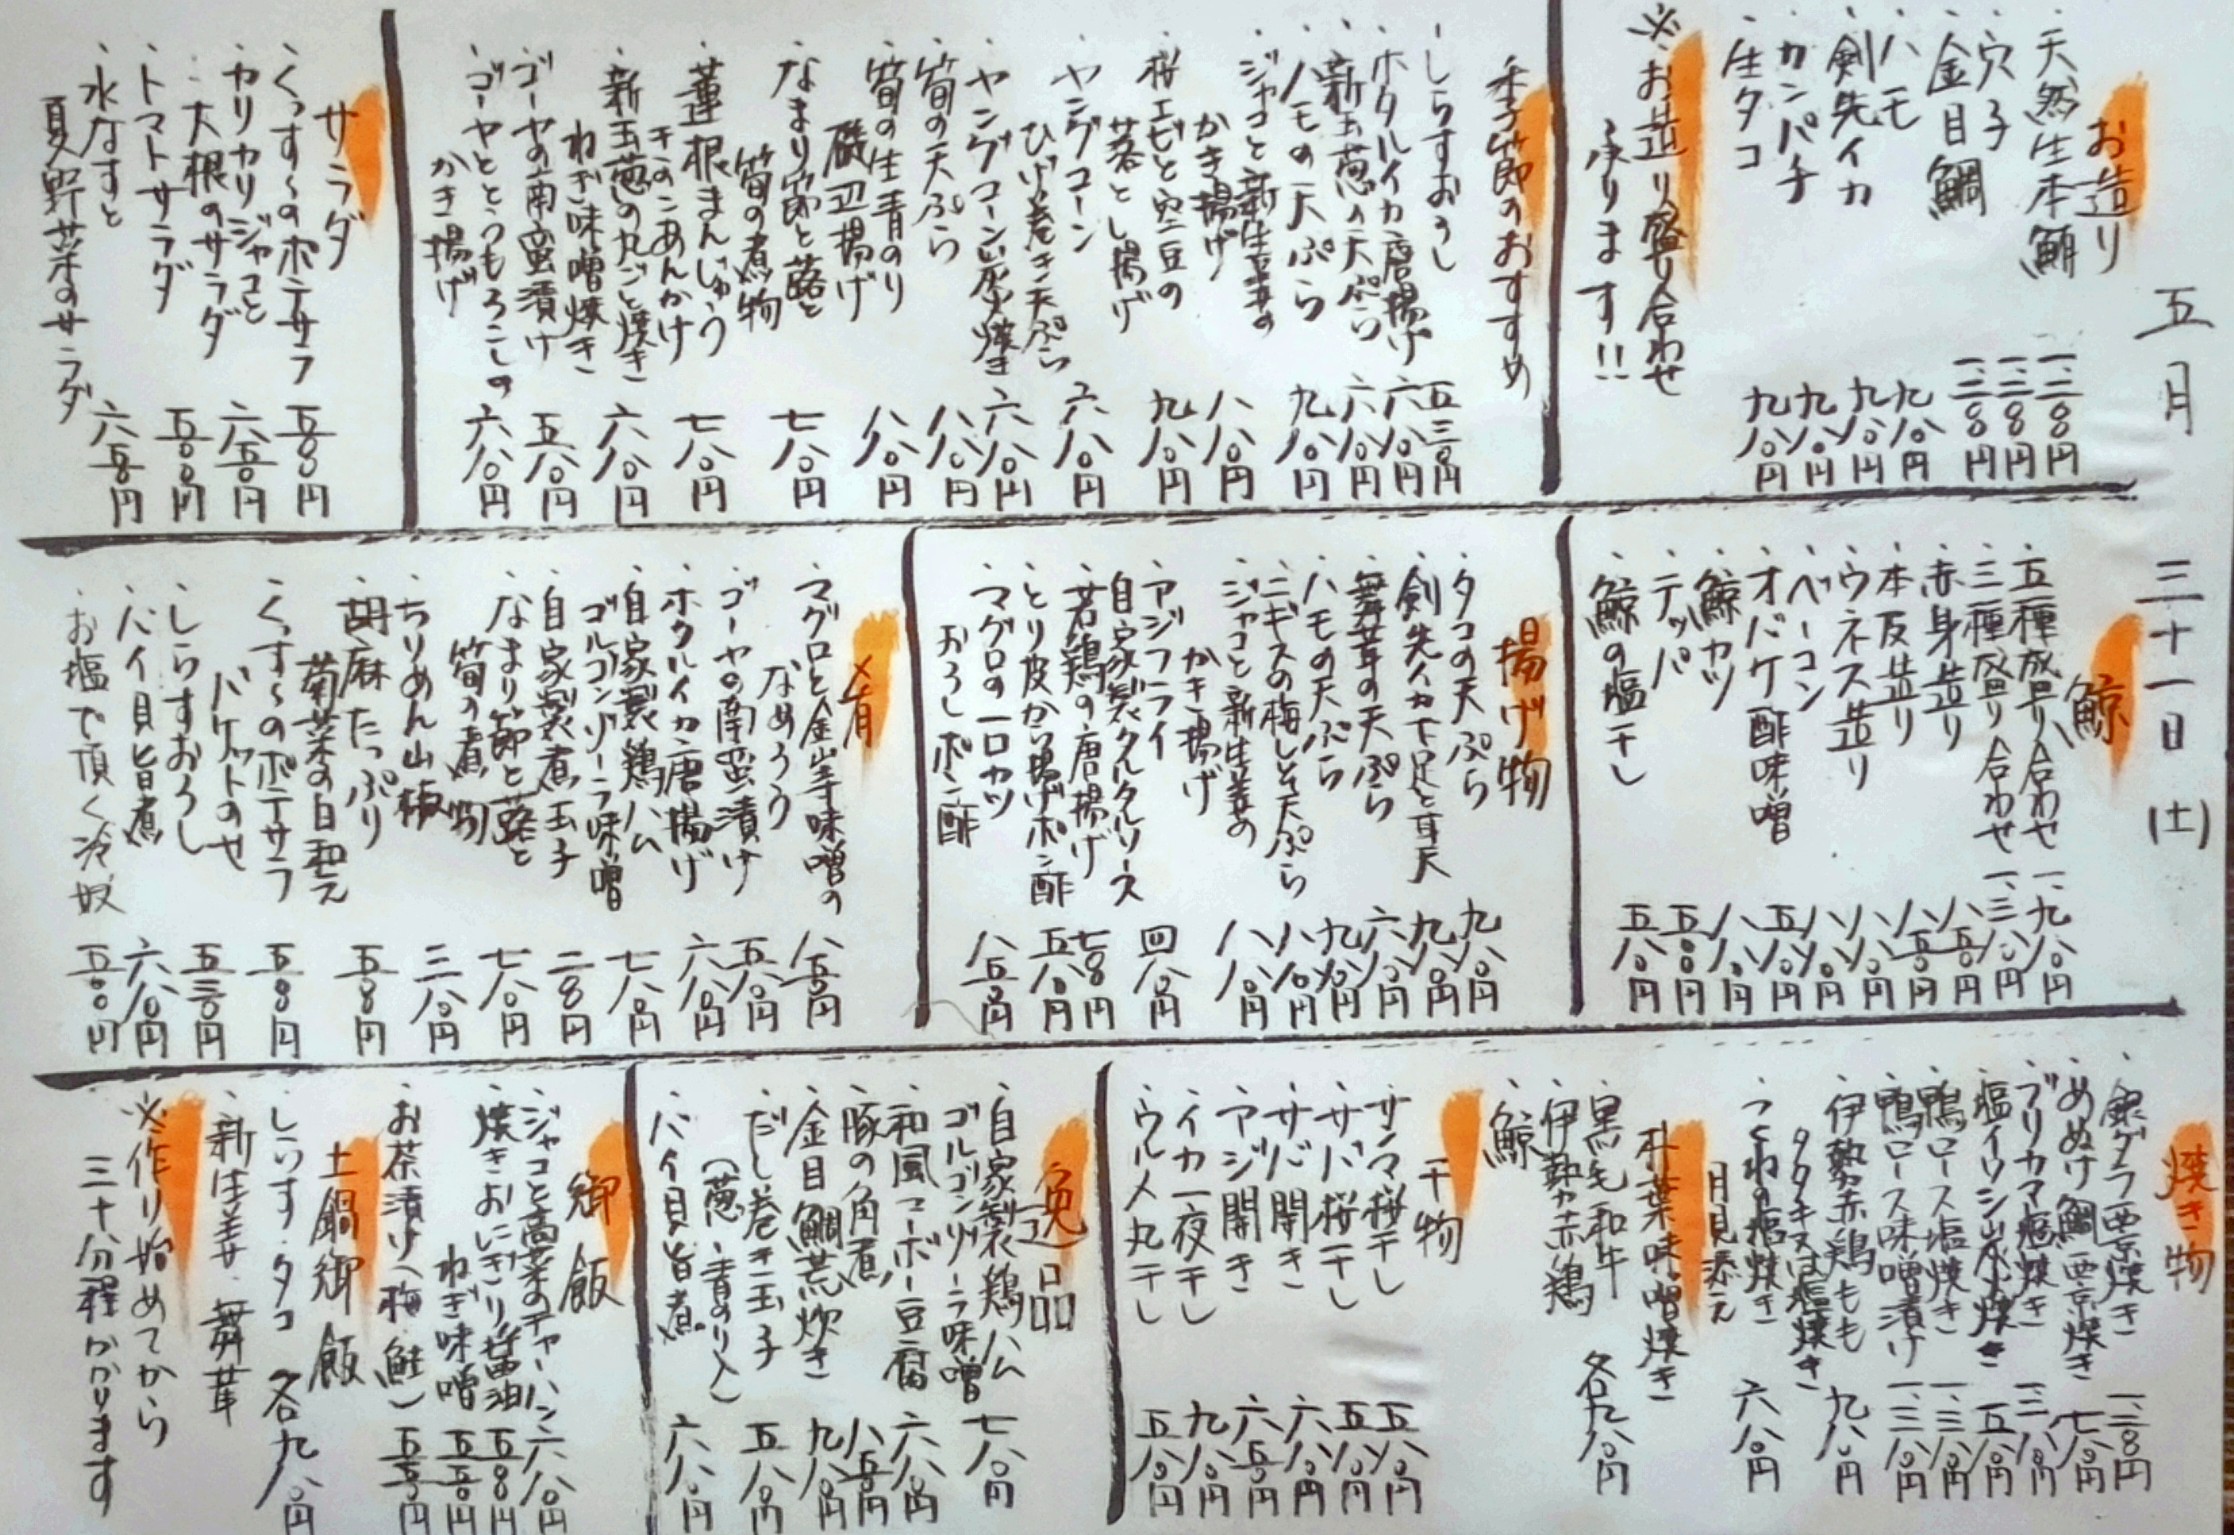 五月三十一日(土)
お造り
・天然生本鮪 一、二〇〇円
・穴子 一、二〇〇円
・金目鯛 一、二〇〇円
・ハモ 九八〇円
・剣先イカ 九八〇円
・カンパチ 九八〇円
・生タコ 九八〇円
※お造り盛り合わせ
承ります!!
季節のおすすめ
・しらすおろし 五三〇円
・ホタルイカ唐揚げ 六八〇円
・新玉葱の天ぷら 六八〇円
・ハモの天ぷら 九八〇円
・ジャコと新生姜の
かき揚げ 八八〇円
・桜エビと空豆の
落とし揚げ 九八〇円
・ヤングコーン
ひげ巻き天ぷら 六八〇円
・ヤングコーン炭火焼き 六八〇円
・筍の天ぷら 八八〇円
・筍の生青のり
磯辺揚げ 八八〇円
・なまり節と蕗と
筍の煮物 七八〇円
・蓮根まんじゅう
きのこあんかけ 七八〇円
・新玉葱の丸ごと焼き
ねぎ味噌焼き 六八〇円
・ゴーヤの南蛮漬け 五八〇円
・ゴーヤととうもろこしの
かき揚げ 六八〇円
サラダ
・くっす〜のポテサラ 五〇〇円
・カリカリジャコと
大根のサラダ 六五〇円
・トマトサラダ 五〇〇円
・水なすと
夏野菜のサラダ 六五〇円
鯨
・五種盛り合わせ 一、九八〇円
・三種盛り合わせ 一、三八〇円
・赤身造り 八五〇円
・本皮造り 八五〇円
・ウネス造り 八八〇円
・ベーコン 八八〇円
・オバケ酢味噌 五八〇円
・鯨カツ 八八〇円
・テッパ 五〇〇円
・鯨の塩干し 五八〇円
揚げ物
・タコの天ぷら 九八〇円
・剣先イカ下足と耳天 九八〇円
・舞茸の天ぷら 六八〇円
・ハモの天ぷら 九八〇円
・ニギスの梅しそ天ぷら 八八〇円
・ジャコと新生姜の
かき揚げ 八八〇円
・アジフライ
自家製タルタルソース 四八〇円
・若鶏の唐揚げ 七〇〇円
・とり皮から揚げポン酢 五八〇円
・マグロの一口カツ
おろしポン酢 八五〇円
肴
・マグロと金山寺味噌の
なめろう 八五〇円
・ゴーヤの南蛮漬け 五八〇円
・ホタルイカ唐揚げ 六八〇円
・自家製鶏ハム
ゴルゴンゾーラ味噌 七八〇円
・自家製煮玉子 二〇〇円
・なまり節と蕗と
筍の煮物 七八〇円
・ちりめん山椒 三八〇円
・胡麻たっぷり
菊菜の白和え 五〇〇円
・くっす〜のポテサラ
バケットのせ 五〇〇円
・しらすおろし 五三〇円
・バイ貝旨煮 六八〇円
・お塩で頂く冷奴 五〇〇円
焼き物
・銀ダラ西京焼き 一、三〇〇円
・めぬけ鯛西京焼き 七八〇円
・ブリカマ塩焼き 一、三八〇円
・塩イワシ炭火焼き 五八〇円
・鴨ロース塩焼き 一、三八〇円
・鴨ロース味噌漬け 一、三八〇円
・伊勢赤鶏もも
タタキ又は塩焼き 九八〇円
・つくねの塩焼き 六八〇円
月見添え
朴葉味噌焼き
・黒毛和牛
・伊勢赤鶏 各九八〇円
・鯨
干物
・サンマ桜干し 五八〇円
・サバ桜干し 五八〇円
・サバ開き 六八〇円
・アジ開き 六五〇円
・イカ一夜干し 九八〇円
・ウルメ丸干し 五八〇円
逸品
・自家製鶏ハム
ゴルゴンゾーラ味噌 七八〇円
・和風マーボー豆腐 六八〇円
・豚の角煮 八五〇円
・金目鯛荒炊き 九八〇円
・だし巻き玉子
(葱・青のり入) 五八〇円
・バイ貝旨煮 六八〇円
御飯
・ジャコと高菜のチャーハン 六八〇円
・焼きおにぎり醤油 五〇〇円
ねぎ味噌 五五〇円
・お茶漬け(梅・鮭) 五五〇円
土鍋御飯
・しらす・タコ 各九八〇円
・新生姜・舞茸
※作り始めてから
三十分程かかります